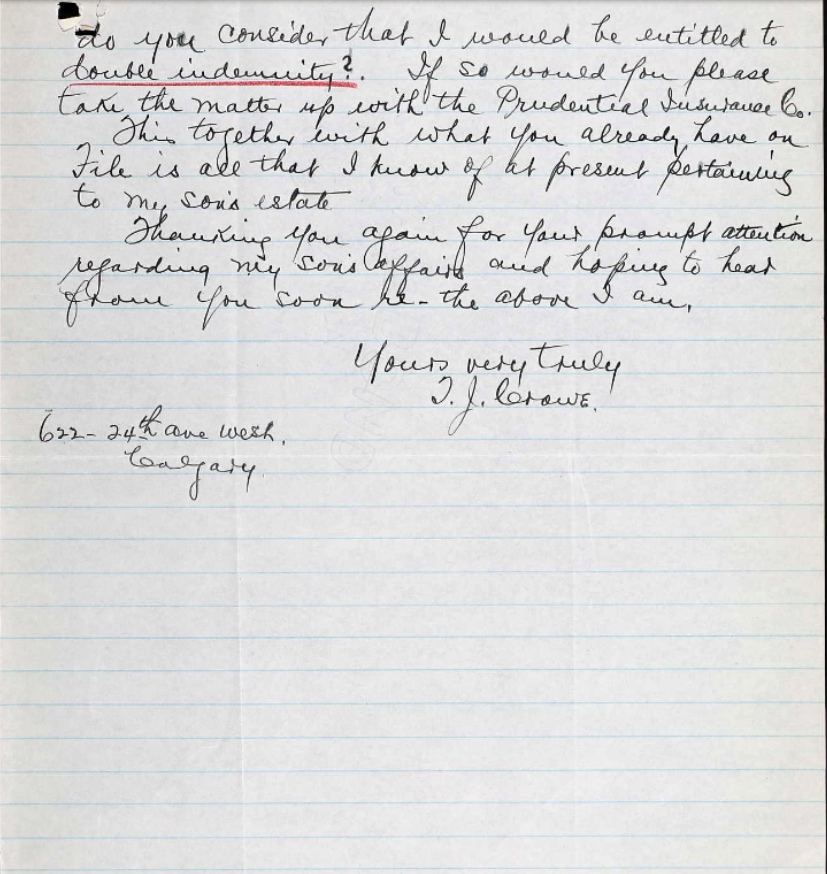 do you consider that I would be entitled to
double indemnity?. If so would you please
take the matter up with the Prudential Insurance Co.
This together with what you already have on
File is all that I know of at present pertaining
to my son's estate
Thanking you again for your prompt attention
regarding my son's affairs and hoping to hear
from you soon re-the above I am,
Yours very truly
T. J. Crowe.
622- 24th ave west.
Calgary.